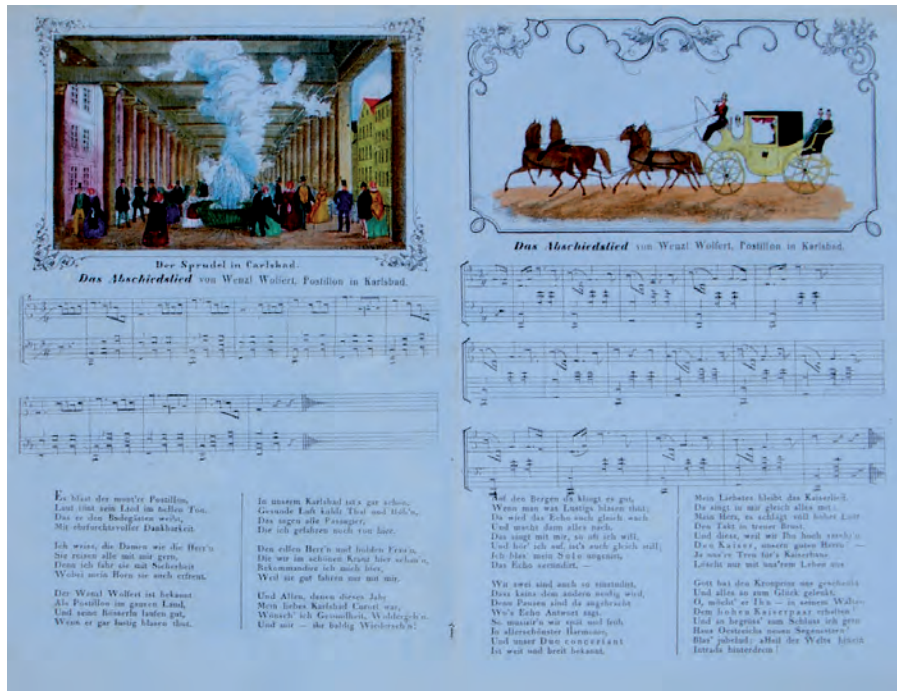 Der Sprudel in Carlsbad.
Das Abschiedslied von Wenzl Wolfert, Postillon in Karlsbad.
Es bläst der munt're Postillon,
Laut tönt sein Lied im hellen Ton.
Das er den Badegästen weiht,
Mit ehrfurchtsvoller Dankbarkeit.
Ich weiss, die Damen wie die Herr'n
Sie reisen alle mit mir gern,
Denn ich fahr sie mit Sicherheit
Wobei mein Horn sie auch erfreut.
Der Wenzl Wolfert ist bekannt
Als Postillon im ganzen Land,
Und seine Rösserln laufen gut,
Wenn er gar lustig blasen thut.
In unserm Karlsbad ist's gar schön,
Gesunde Luft kühlt Thal und Höh'n,
Das sagen alle Passagier,
Die ich gefahren noch von hier.
Den edlen Herr'n und holden Frau'n,
Die wir im schönen Kranz hier schau'n,
Rekommandire ich mich hier,
Weil sie gut fahren nur mit mir.
Und Allen, denen dieses Jahr
Mein liebes Karlsbad Curort war,
Wünsch' ich Gesundheit, Wohlergeh'n
Und mir — ihr baldig Wiederseh'n!
Das Abschiedslied von Wenzl Wolfert, Postillon in Karlsbad.
Auf den Bergen da klingt es gut,
Wenn man was Lustigs blasen thut;
Da wird das Echo auch gleich wach
Und macht dann alles nach.
Das singt mit mir, so oft ich will,
Und hör' ich auf, ist's auch gleich still;
Ich blas' mein Solo ungenirt,
Das Echo secundirt. —
Wir zwei sind auch so einstudirt,
Dass keins dem andern neidig wird,
Denn Pausen sind da angebracht
Wo's Echo Antwort sagt.
So musizir'n wir spät und früh
In allerschönster Harmonie,
Und unser Duo concertant
Ist weit und breit bekannt.
Mein Liebstes bleibt das Kaiserlied
Da singt in mir gleich alles mit;
Mein Herz, es schlägt voll hoher Lust
Den Takt in treuer Brust.
Und diese, weil wir Ihn hoch
Den Kaiser, unsern guten Herrn —
Ja uns're Treu für's Kaiserhaus
Löscht nur mit uns'rem Leben aus
Gott hat den Kronprinz uns geschenkt
Und alles so zum Glück gelenkt.
O, möcht' er Ihn — in seinem Walten
Dem hohen Kaiserpaar erhalten
Und so begrüss' zum Schluss ich gern
Haus Oestreichs neuen Segensstern!
Blas' jubelnd: »Heil der Welt« hinein
Intrada hinterdrein!